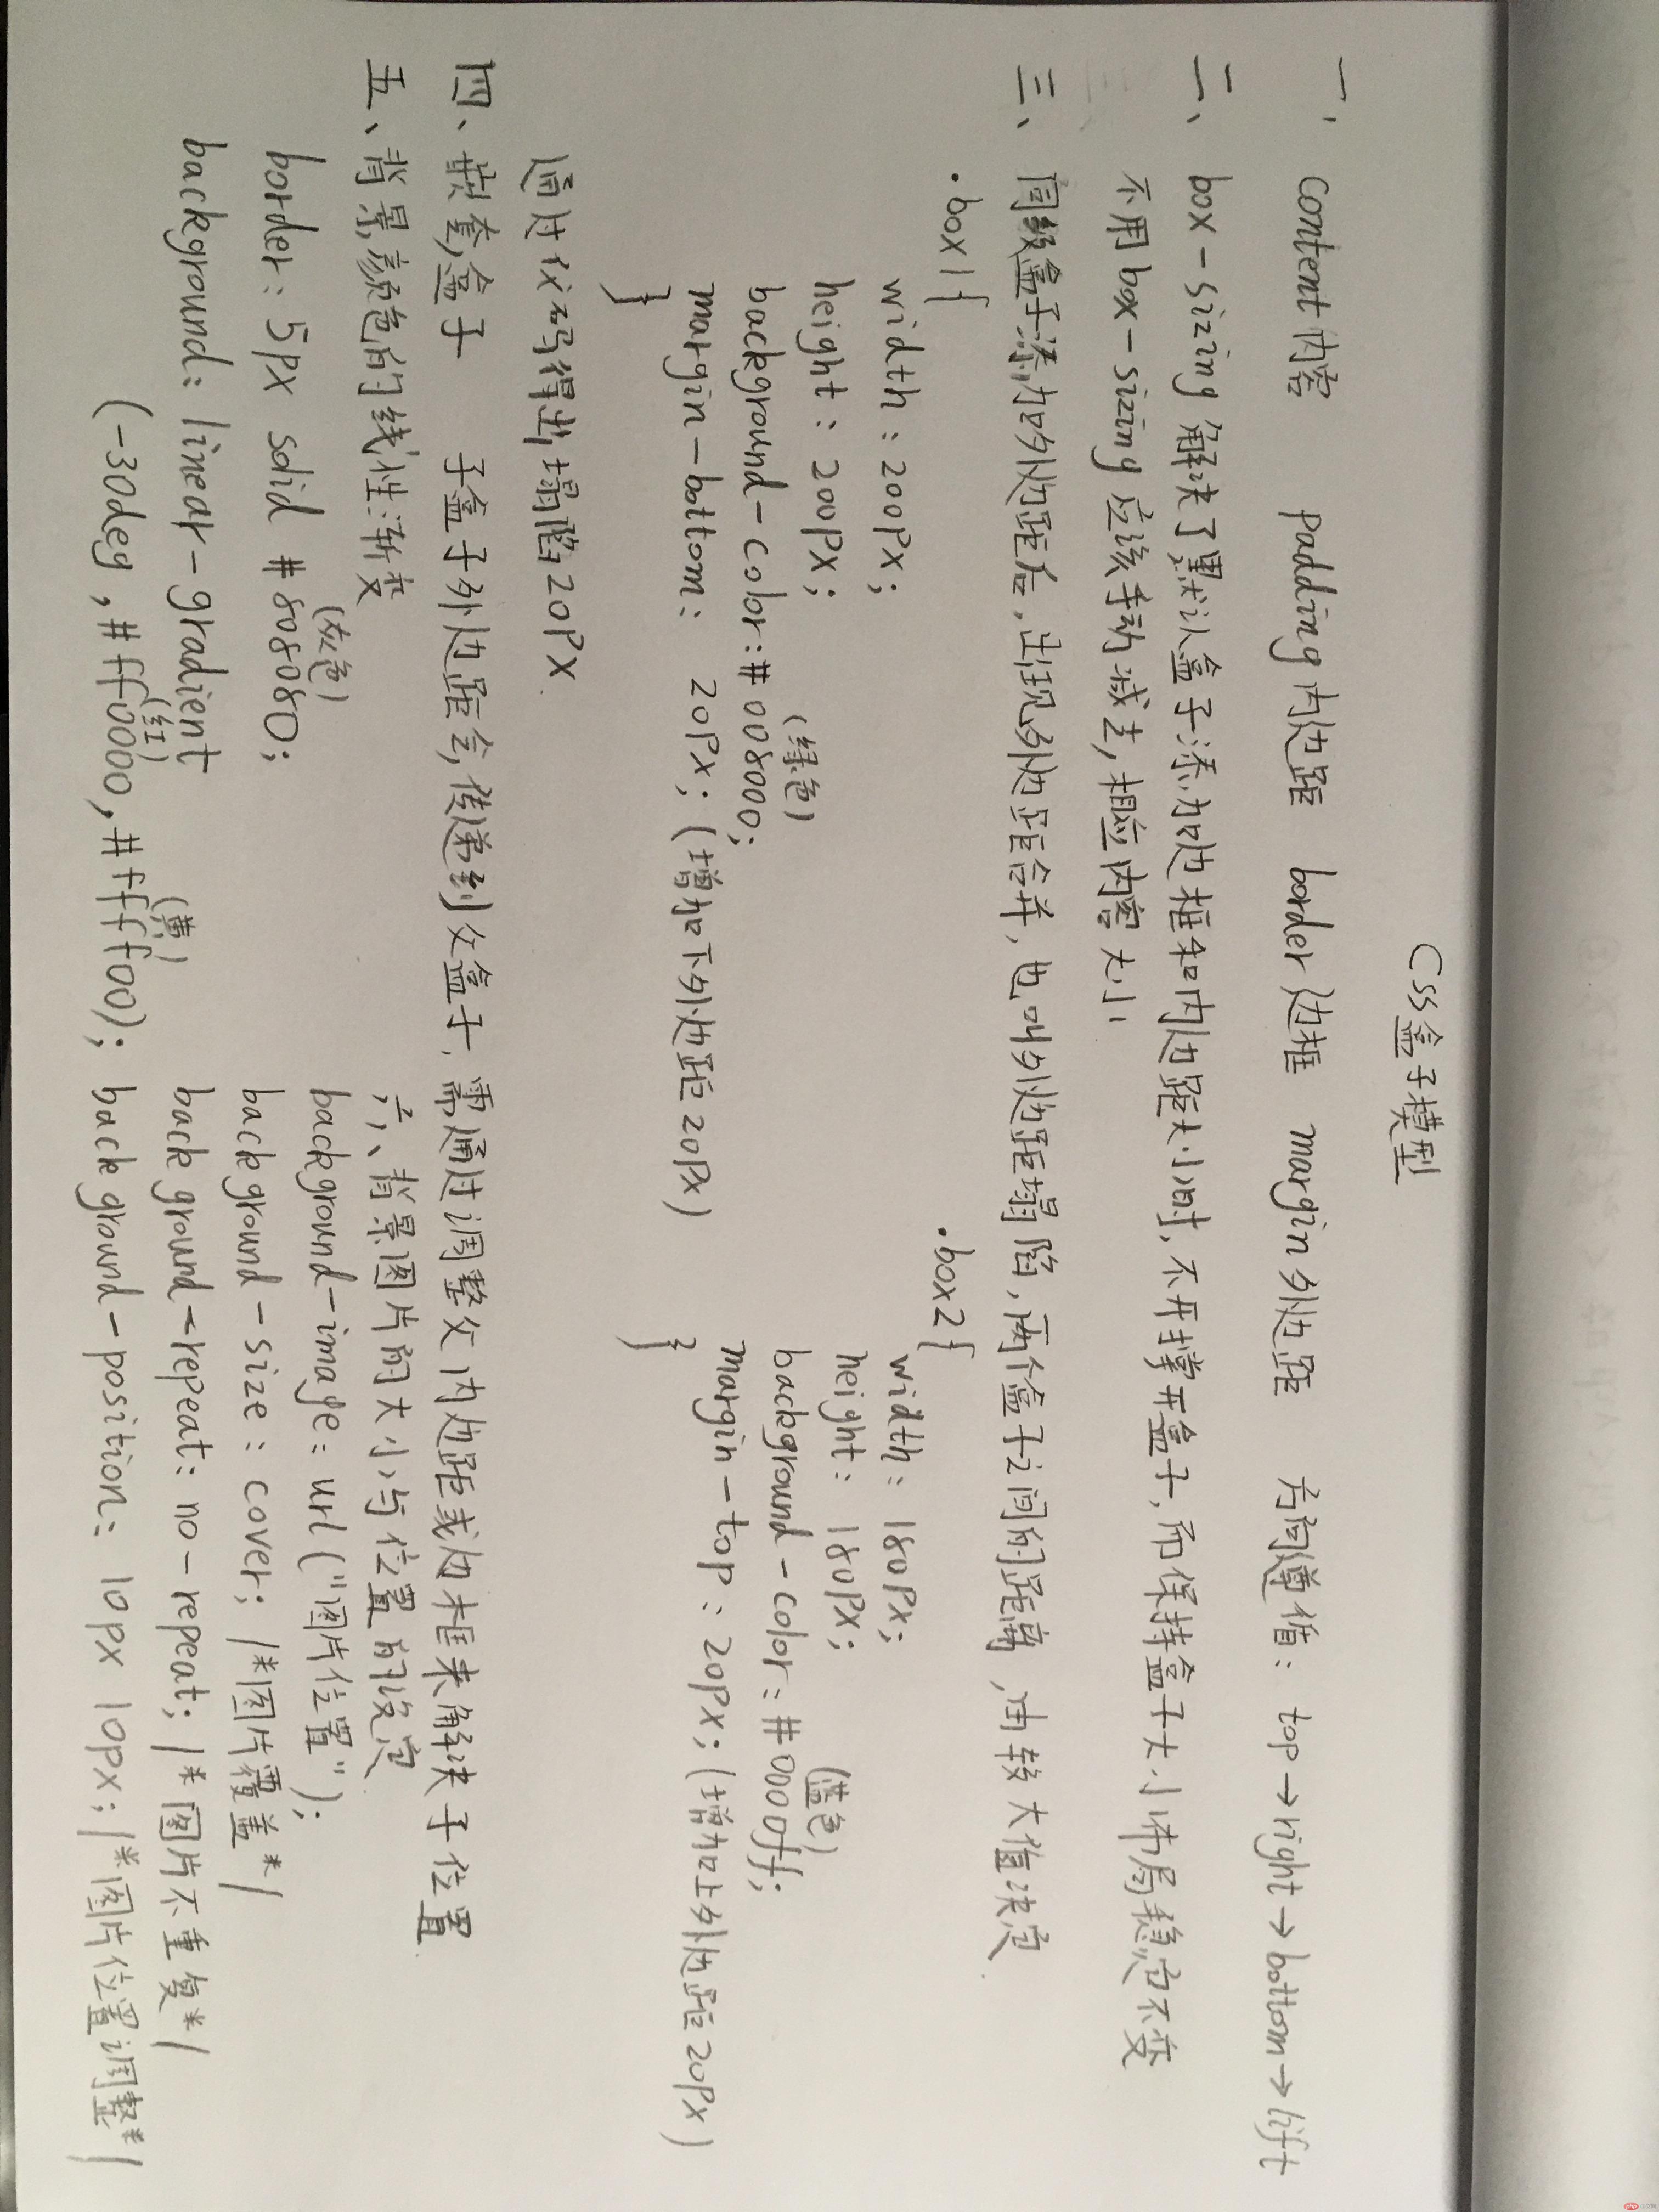 CSS盒子模型
一、content内容 padding内边距 border边框 margin外边距 方向遵循：top→right→bottom→lift
二、box-sizing解决了默认盒子添加边框和内边距大小时，不用撑开盒子，而保持盒子大小布局稳定不变
不用box-sizing应该手动减去，相应内容大小
三、同级盒子添加外边距后，出现外边距合并，也叫外边距塌陷，两个盒子之间的距离，由较大值决定.
.box1{
width：200px；
height：200px；
(绿色)
background-color:#008000;
margin-bottom： 20px；(增加下外边距20px)
}
.box2{
width：180px；
height：180px；
(蓝色)
background-color：#0000ff；
margin-top：20px；(增加上外边距20px)
}
通过代码得出塌陷20px.
四、嵌套盒子 子盒子外边距会传递到父盒子，需通过调整父内边距或边框来解决子位置
五、背景颜色的线性渐变
(灰色)
border：5px solid #808080；
background：linear-gradient
(红) (黄)
(-30deg,#ff0000,#ffff00)；
六、背景图片的大小与位置的设定
background-image：url("图片位置")；
background-size：cover；/*图片覆盖*/
background-repeat：no-repeat；/*图片不重复*/
background-position：10px 10px；/*图片位置调整*/
php